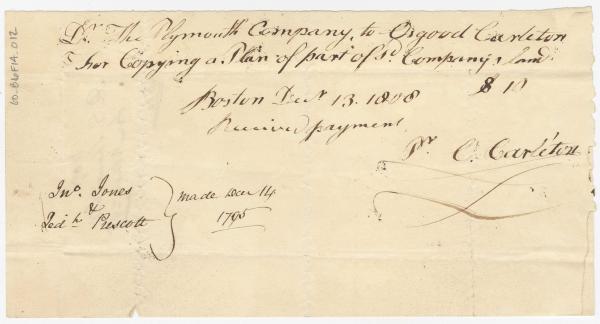 Dr. The Plymouth Company, to Osgood Carleton
For Copying a Plan of part of sd. Companys land
$ 10
Boston Decr. 13. 1808
Received payment
Pr. O. Carleton
Jno. Jones
&
Jedh. Prescott
made Decr 14
1795
60.B6F14.012